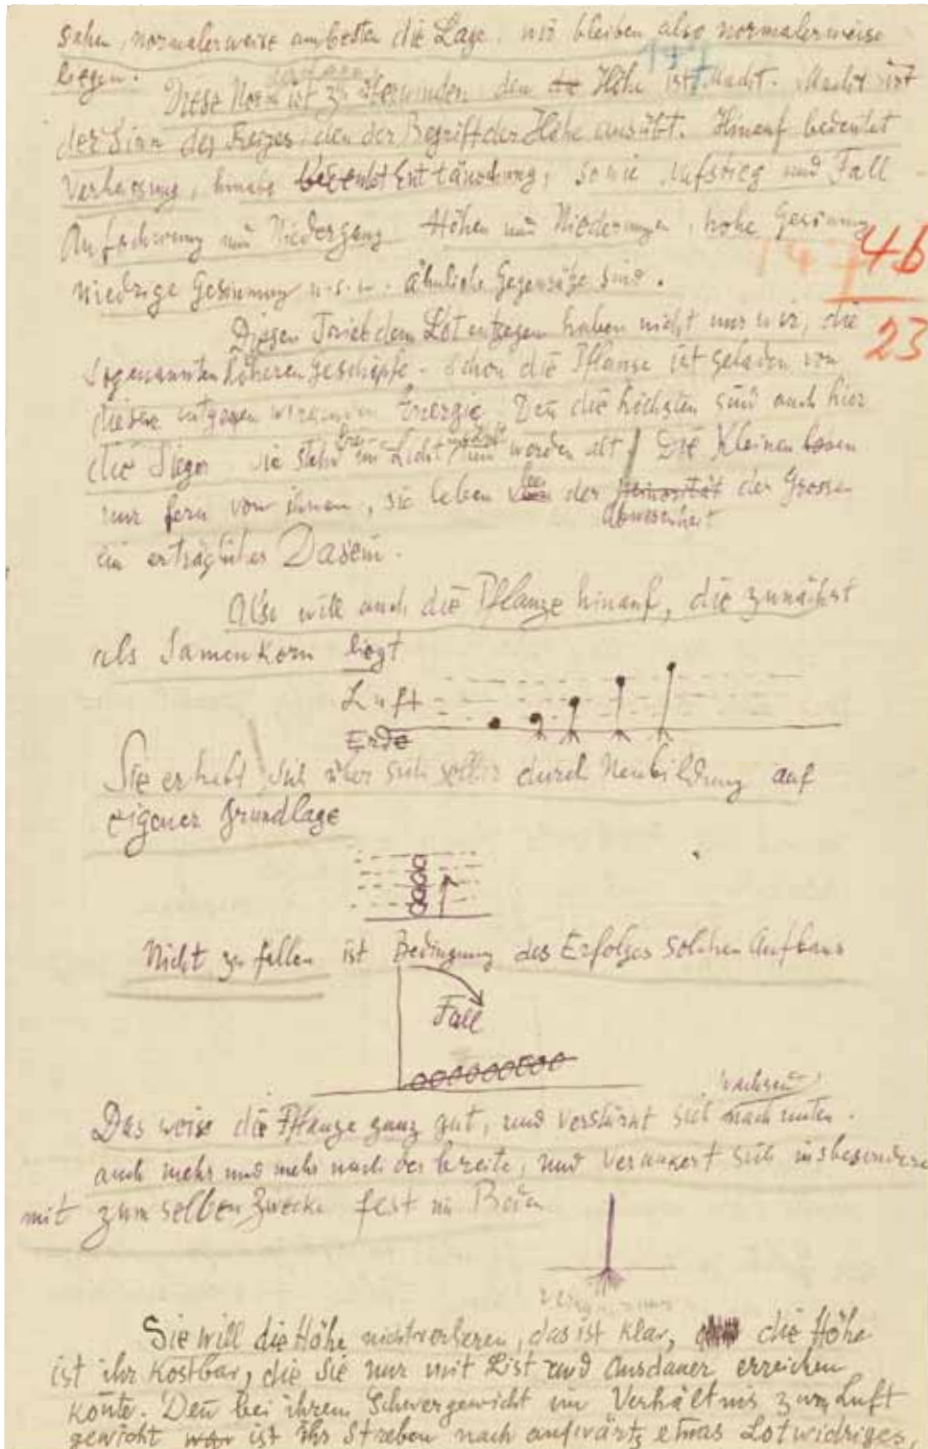 sahen, normalerweise am besten die Lage. wir bleiben also normalerweise
liegen.
Diese Norm ist zu überwinden den Höhe ist Macht. Macht ist
der Sinn des Reizes, den der Begriff der Höhe ausübt. Hinauf bedeutet
Verheissung, hinab bedeutet Enttäuschung, sowie Aufstieg und Fall
Aufschwung und Niedergang Höhen und Niederungen, hohe Gesinnung
niedrige Gesinnung u.s.w. ähnliche Gegensätze sind.
46
23
Diesen Trieb dem Lot entgegen haben nicht nur wir, die
sogenannten höheren Geschöpfe. Schon die Pflanze ist geladen von
dieser entgegen wirkenden Energie. Den die höchsten sind auch hier
die Sieger sie stehn im Licht und werden alt. Die Kleinen
nur fern von ihnen, sie leben bei der Minorität der Grossen
Abwesenheit
ein erträgliches Dasein.
Also will auch die Pflanze hinauf, die zunächst
als Samenkorn liegt
Luft
Erde
Sie erhebt sich über sich selber durch Neubildung auf
eigener Grundlage
Nicht zu fallen ist Bedingung des Erfolges solchen Aufbaus
Fall
wachsend
Das weiss die Pflanze ganz gut, und verstärkt sich nach unten.
auch mehr und mehr nach der breite, und verankert sich insbesondere
mit zum selben Zwecke fest im Boden
Sie will die Höhe nicht verlieren, das ist klar, die Höhe
ist ihr kostbar, die Sie nur mit List und Ausdauer erreichen
konte. Den bei ihrem Schwergewicht im Verhältnis zum Luft
gewicht war ist ihr Streben nach aufwärts etwas Lotwidriges,